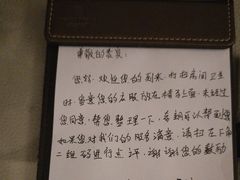 尊敬的贵宾：
您好，欢迎您的到来，打扫房间卫生
时，留意您的衣服放在椅子上面，未经过
您同意，帮您整理一下，希望可以帮到您
如果您对我们的服务满意，请扫左下角
二维码进行点评，谢谢您的鼓励